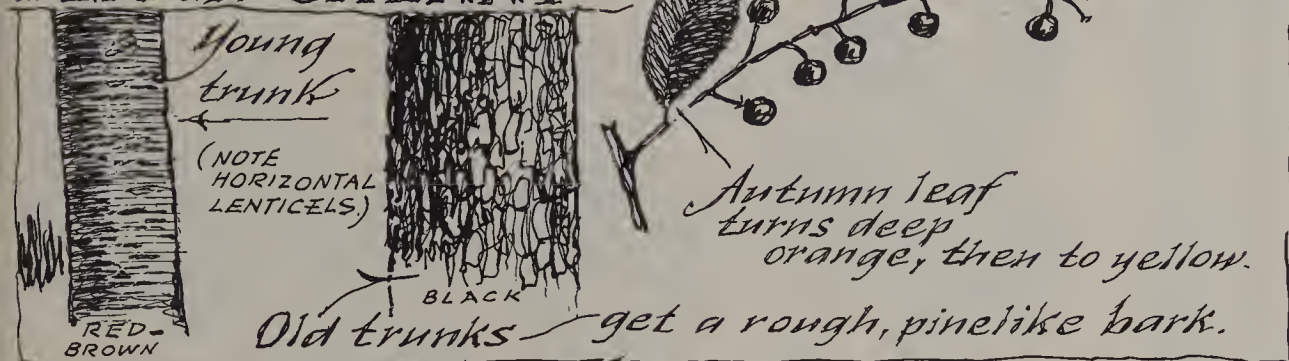 Young
trunk
(NOTE
HORIZONTAL
LENTICELS.)
RED-
BROWN
BLACK
Autumn leaf
turns deep
orange, then to yellow.
Old trunks get a rough, pinelike bark.